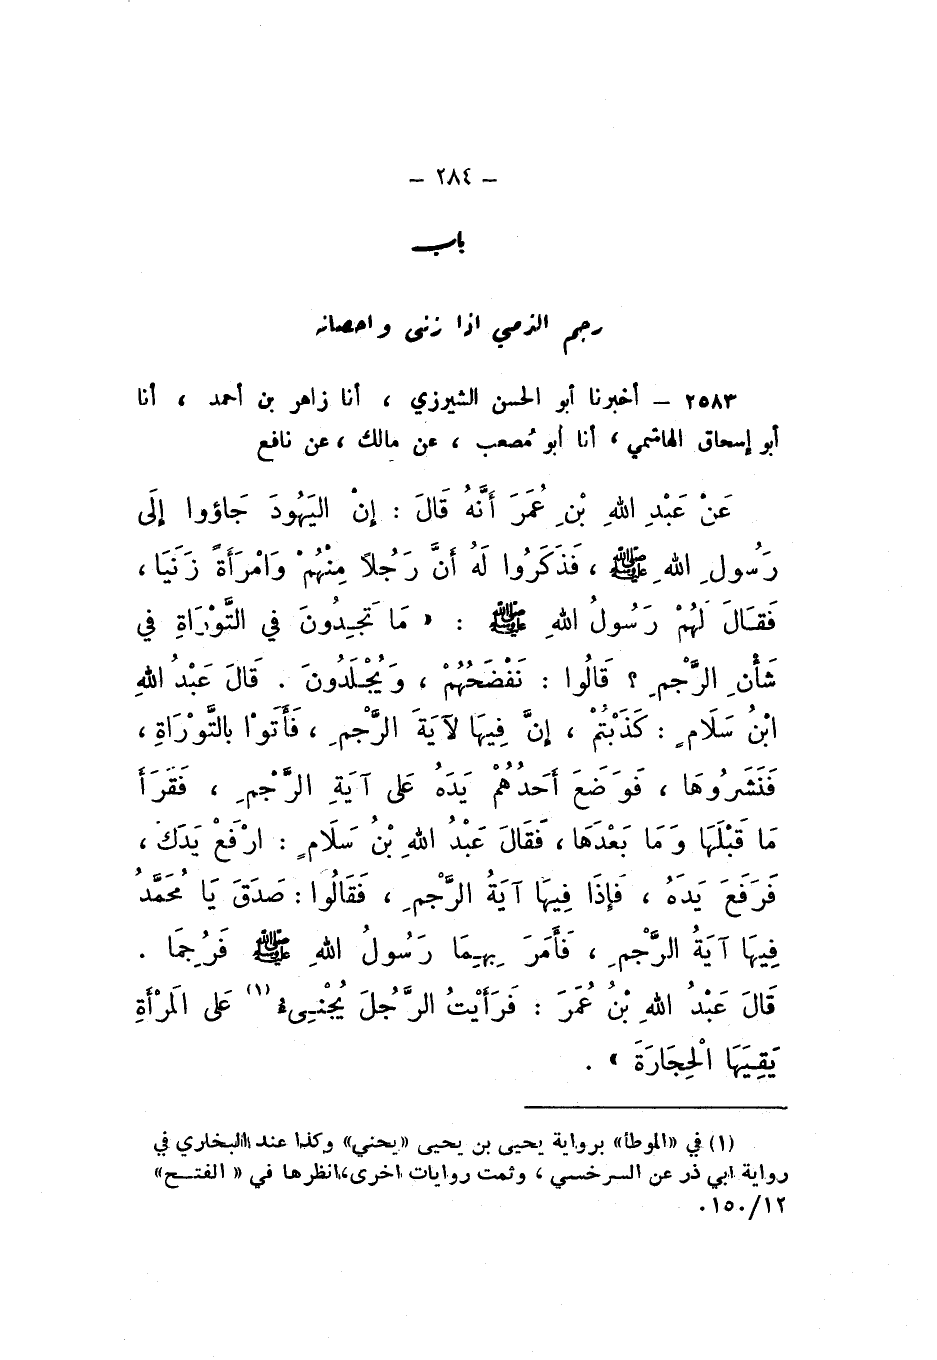 – ٢٨٤ –
باب
رجم الذمي اذا زنى واحصانه
٢٥٨٣ – أخبرنا أبو الحسن الشيرزي ، أنا زاهر بن أحمد ، أنا
أبو إسحاق الهاشمي ، أنا أبو مُصعب ، عن مالك ، عن نافع
عَنْ عَبْدِ اللهِ بْنِ عُمَرَ أَنَّهُ قَالَ : إِنْ اليَهُودَ جَاؤوا إِلَى
رَسُولِ اللهِ ﷺ ، فَذَكَرُوا لَهُ أَنَّ رَجُلاً مِنْهُمْ وَامْرَأَةً زَنَيَا ،
فَقَالَ لَهُمْ رَسُولُ اللهِ ﷺ : « مَا تَجِدُونَ في التَّوْرَاةِ في
شَأْنِ الرَّجْمِ ؟ قَالُوا : نَفْضَحُهُمْ ، وَيُجْلَدُونَ . قَالَ عَبْدُ اللهِ
ابْنُ سَلَامٍ : كَذَبْتُمْ ، إِنَّ فِيهَا لآيَةَ الرَّجْمِ ، فَأَتَوْا بِالتَّوْرَاةِ ،
فَنَشَرُوهَا ، فَوَضَعَ أَحَدُهُمْ يَدَهُ عَلَى آيَةِ الرَّجْمِ ، فَقَرَأَ
مَا قَبْلَهَا وَمَا بَعْدَهَا ، فَقَالَ عَبْدُ اللهِ بْنُ سَلَامٍ : ارْفَعْ يَدَكَ ،
فَرَفَعَ يَدَهُ ، فَإِذَا فِيهَا آيَةُ الرَّجْمِ ، فَقَالُوا : صَدَقَ يَا مُحَمَّدُ
فِيهَا آيَةُ الرَّجْمِ ، فَأَمَرَ بِهِمَا رَسُولُ اللهِ ﷺ فَرُجِمَا .
قَالَ عَبْدُ اللهِ بْنُ عُمَرَ : فَرَأَيْتُ الرَّجُلَ يُجْنِىءُ (١) عَلَى المَرْأَةِ
يَقِيَهَا الْحِجَارَةَ » .
(١) في «الموطأ» برواية يحيى بن يحيى «يحني» وكذا عند البخاري في
رواية ابي ذر عن السرخسي ، وثمت روايات اخرى، انظرها في « الفتح»
١٢/١٥٠.